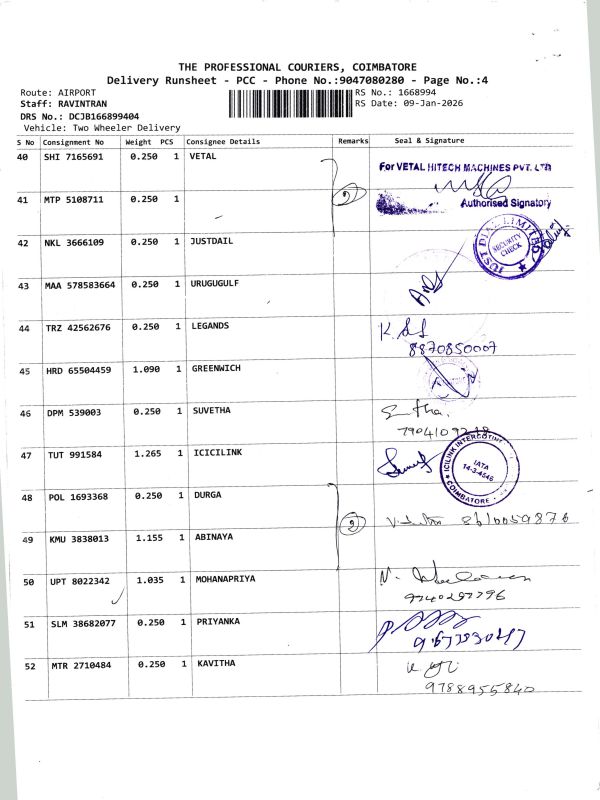 THE PROFESSIONAL COURIERS, COIMBATORE
Delivery Runsheet - PCC - Phone No.:9047080280 - Page No.:4
Route: AIRPORT RS No.: 1668994
Staff: RAVINTRAN RS Date: 09-Jan-2026
DRS No.: DCJB166899404
Vehicle: Two Wheeler Delivery
S No Consignment No Weight PCS Consignee Details Remarks Seal & Signature
40 SHI 7165691 0.250 1 VETAL For VETAL HITECH MACHINES PVT. LTD
41 MTP 5108711 0.250 1 2 Authorised Signatory
42 NKL 3666109 0.250 1 JUSTDAIL JUST DIAL LIMITED SECURITY CHECK
43 MAA 578583664 0.250 1 URUGUGULF
44 TRZ 42562676 0.250 1 LEGANDS
8870850007
45 HRD 65504459 1.090 1 GREENWICH
46 DPM 539003 0.250 1 SUVETHA
47 TUT 991584 1.265 1 ICICILINK IATA 14-3-4646 COIMBATORE
48 POL 1693368 0.250 1 DURGA
2
49 KMU 3838013 1.155 1 ABINAYA
50 UPT 8022342 1.035 1 MOHANAPRIYA
51 SLM 38682077 0.250 1 PRIYANKA
52 MTR 2710484 0.250 1 KAVITHA
9788955840